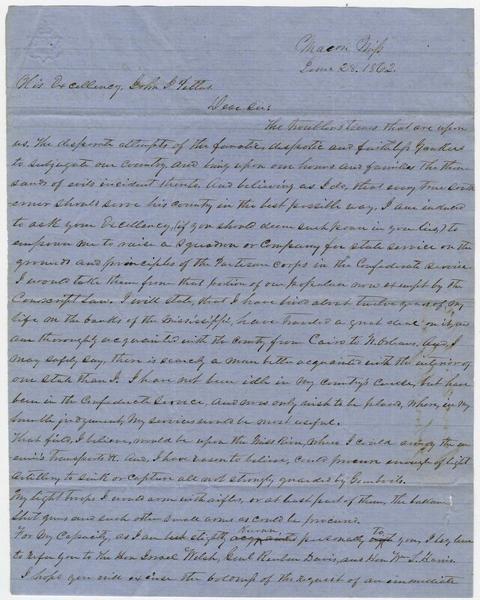 Macon, Miss
June 28. 1862.
His Excellency, John J Pettus
Dear Sir:
The troublous times that are upon
us. The desperate attempts of the fanatic, despotic and faithless Yankees
to subjugate our Country and bring upon our homes and families the thou
sands of evils incident thereto. And believing as I do, that every true South
erner should serve his country in the best possible way. I am induced
to ask your Excellency, (if you should deem such power in you lies) to
empower me to raise a Squadron or Company for state service on the
grounds and principles of the Partisan corps in the Confederate service.
I would take them from that portion of our population now exempt by the
Conscript Law. I will state, that I have lived about twelve years of my
life on the banks of the Mississippi, have traveled a great deal on it, and
am thoroughly acquainted with the country from Cairo to N. Orleans. And, I
may safely say, there is scarcely a man better acquainted with the interior of
our state than I. I have not been idle in my country's cause, but have
been in the Confederate Service, and now only wish to be placed, where, in my
humble judgement, my services would be most useful.
That field, I believe, would be upon the Miss River, where I could annoy the en
emie's transports &c. And, I have reason to believe, could procure enough of light
artillery to sink or capture all not strongly guarded by Gunboats.
My light troops I would arm with rifles, or at least part of them, the balance
Shot guns and such other small arms as could be procured.
For my Capacity, as I am but slightly known personally to you, I beg leave
to refer you to the Hon Israel Welsh, Genl Reuben Davis, and Hon Wm S. Harris.
I hope you will excuse the boldness of the request of an immediate